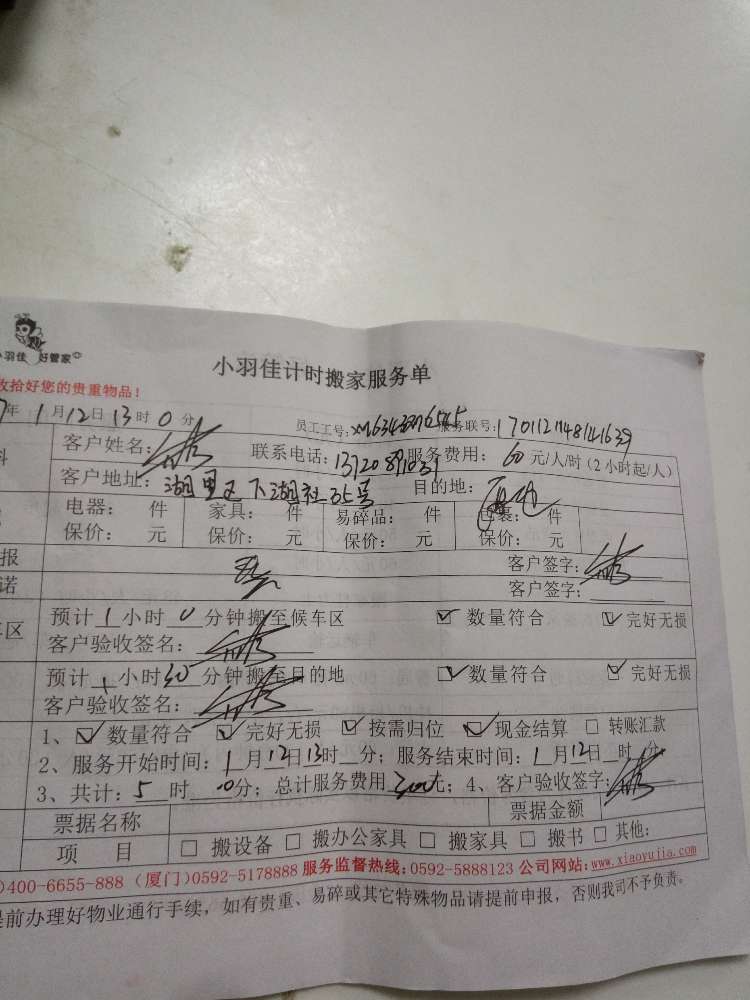 小羽佳 好管家
小羽佳计时搬家服务单
收拾好您的贵重物品！
7年1月12日13时0分 员工工号： 服务联号：1701121148141639
客户姓名： 联系电话： 服务费用：60元/人/时（2小时起/人）
客户地址：湖里区下湖社35号 目的地：
电器： 件 家具： 件 易碎品： 件 包裹： 件
保价： 元 保价： 元 保价： 元 保价： 元
报 客户签字：
诺 客户签字：
预计1小时0分钟搬至候车区 数量符合 完好无损
车区 客户验收签名：
预计1小时30分钟搬至目的地 数量符合 完好无损
客户验收签名：
1、数量符合 完好无损 按需归位 现金结算 转账汇款
2、服务开始时间：1月12日13时 分；服务结束时间：1月12日 时 分
3、共计：5时0分；总计服务费用300元；4、客户验收签字：
票据名称 票据金额
项 目 搬设备 搬办公家具 搬家具 搬书 其他：
)400-6655-888（厦门）0592-5178888 服务监督热线：0592-5888123 公司网站：www.xiaoyujia.com
提前办理好物业通行手续，如有贵重、易碎或其它特殊物品请提前申报，否则我司不予负责。